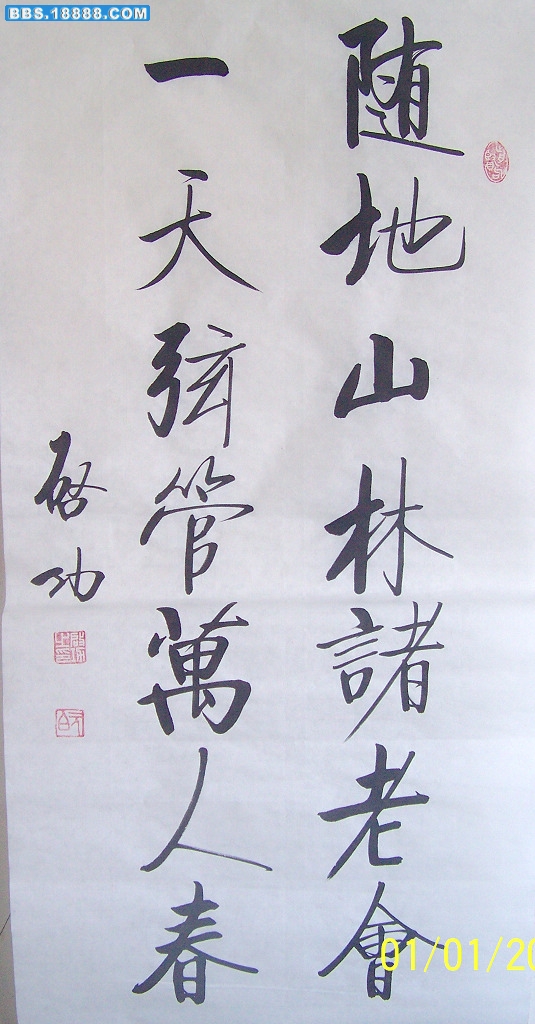 BBS.18888.COM
随地山林諸老會
一天弦管萬人春
启功
01/01/20